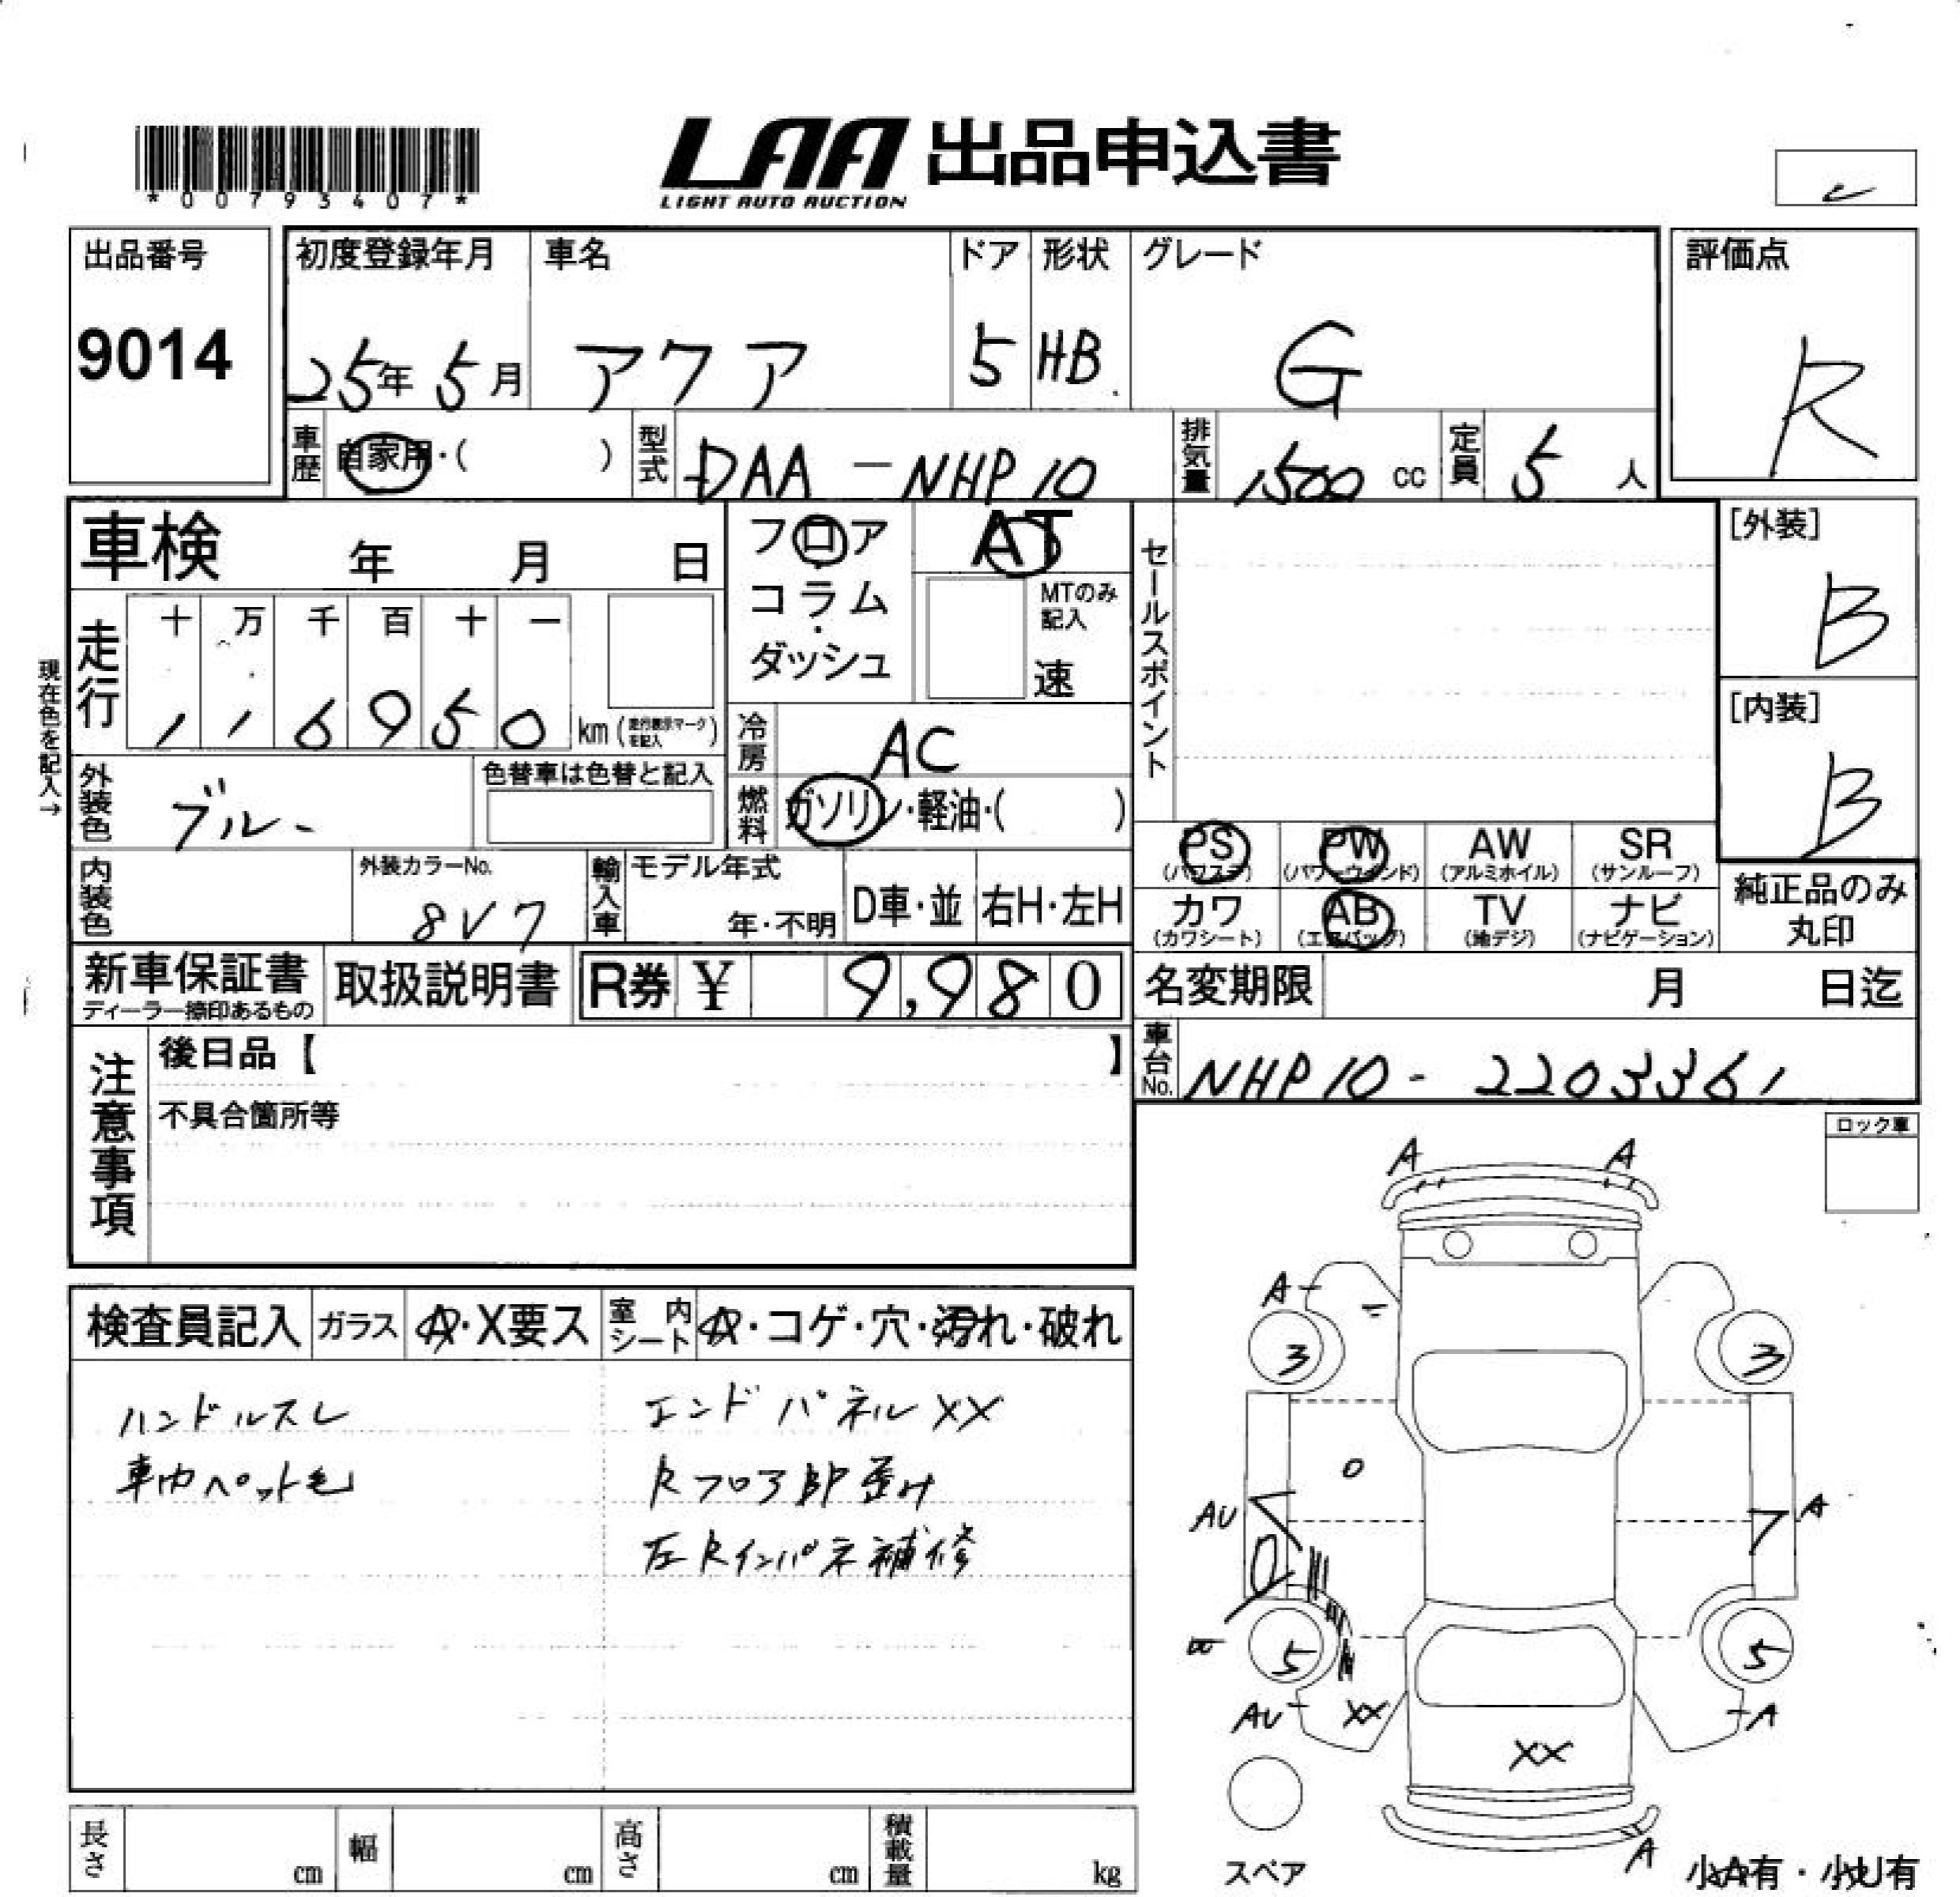 *00793407*
LAA 出品申込書
LIGHT AUTO AUCTION
出品番号
9014
初度登録年月
25年 5月
車名
アクア
ドア
5
形状
HB
グレード
G
評価点
R
車歴
自家用・( )
型式
DAA-NHP10
排気量
1500 cc
定員
5 人
車検 年 月 日
フロア
コラム
・
ダッシュ
AT
MTのみ
記入
速
セールスポイント
[外装]
B
[内装]
B
現在色を記入→
走行
十 万 千 百 十 一
1 1 6 9 5 0 km (走行表示マークを記入)
冷房
AC
外装色
ブルー
色替車は色替と記入
燃料
ガソリン・軽油・( )
PS
(パワステ)
PW
(パワーウインド)
AW
(アルミホイル)
SR
(サンルーフ)
カワ
(カワシート)
AB
(エアバッグ)
TV
(地デジ)
ナビ
(ナビゲーション)
純正品のみ
丸印
内装色
外装カラーNo.
8V7
輸入車
モデル年式
年・不明
D車・並
右H・左H
新車保証書
ディーラー捺印あるもの
取扱説明書
R券 ¥ 9,980
名変期限 月 日迄
車台No.
NHP10-2203361
注意事項
後日品【 】
不具合箇所等
ロック車
検査員記入
ガラス
A・X要ス
室内シート
A・コゲ・穴・汚れ・破れ
ハンドルスレ
車内ペット毛
エンドパネルXX
Rフロア部歪み
左Rインパネ補修
A
A
A
3
3
AU
A
5
5
AU
XX
A
XX
A
スペア
小A有・小U有
長さ cm
幅 cm
高さ cm
積載量 kg